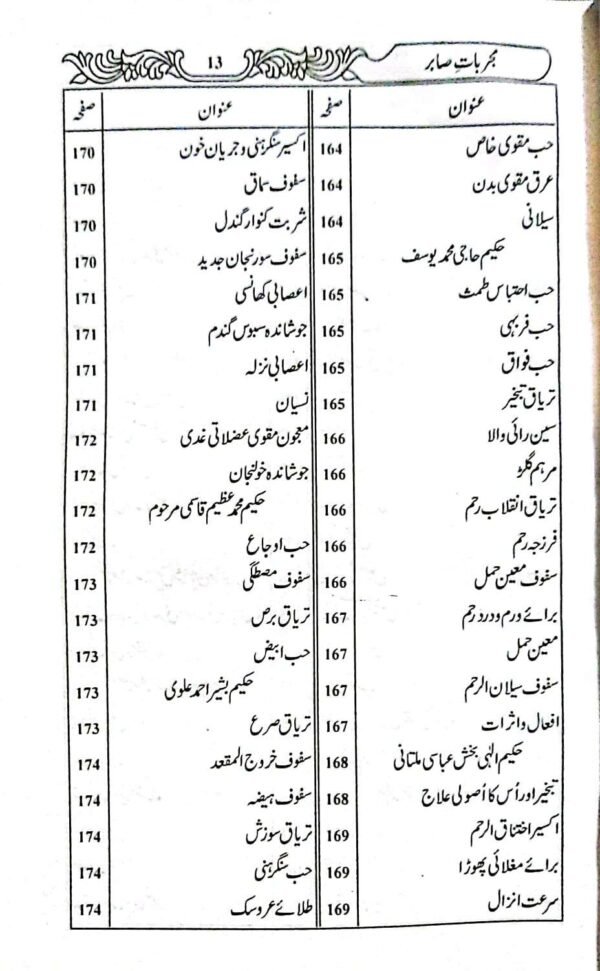 مجربات صابر
13
عنوان صفحہ
حب مقوی خاص 164
عرق مقوی بدن 164
سیلانی 164
حکیم حاجی محمد یوسف 165
حب احتباس طمث 165
حب فربہی 165
حب فواق 165
تریاق تبخیر 165
سین رائی والا 166
مرہم گلڑ 166
تریاق انقلاب رحم 166
فرزجہ رحم 166
سفوف معین حمل 166
برائے ورم و درد رحم 167
معین حمل 167
سفوف سیلان الرحم 167
افعال و اثرات 167
حکیم الٰہی بخش عباسی ملتانی 168
تبخیر اور اُس کا اُصولی علاج 168
اکسیر اختناق الرحم 169
برائے مغلائی پھوڑا 169
سرعت انزال 169
عنوان صفحہ
اکسیر سنگرہنی و جریان خون 170
سفوف سماق 170
شربت کنوار گندل 170
سفوف سورنجان جدید 170
اعصابی کھانسی 171
جوشاندہ سبوس گندم 171
اعصابی نزلہ 171
نسیان 171
معجون مقوی عضلاتی غدی 172
جوشاندہ خولنجان 172
حکیم محمد عظیم قاسمی مرحوم 172
حب اوجاع 172
سفوف مصطگی 173
تریاق برص 173
حب ابیض 173
حکیم بشیر احمد علوی 173
تریاق صرع 173
سفوف خروج المقعد 174
سفوف ہیضہ 174
تریاق سوزش 174
حب سنگرہنی 174
طلائے عروسک 174